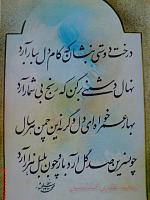 درخت دوستی بنشان که کام دل ببار آرد
نهال دشمنی برکن که رنج بی شمار آرد
بهار عمر خواه ای دل وگرنه این چمن هر سال
چو نسرین صد گل آرد بار و چون بلبل هزار آرد